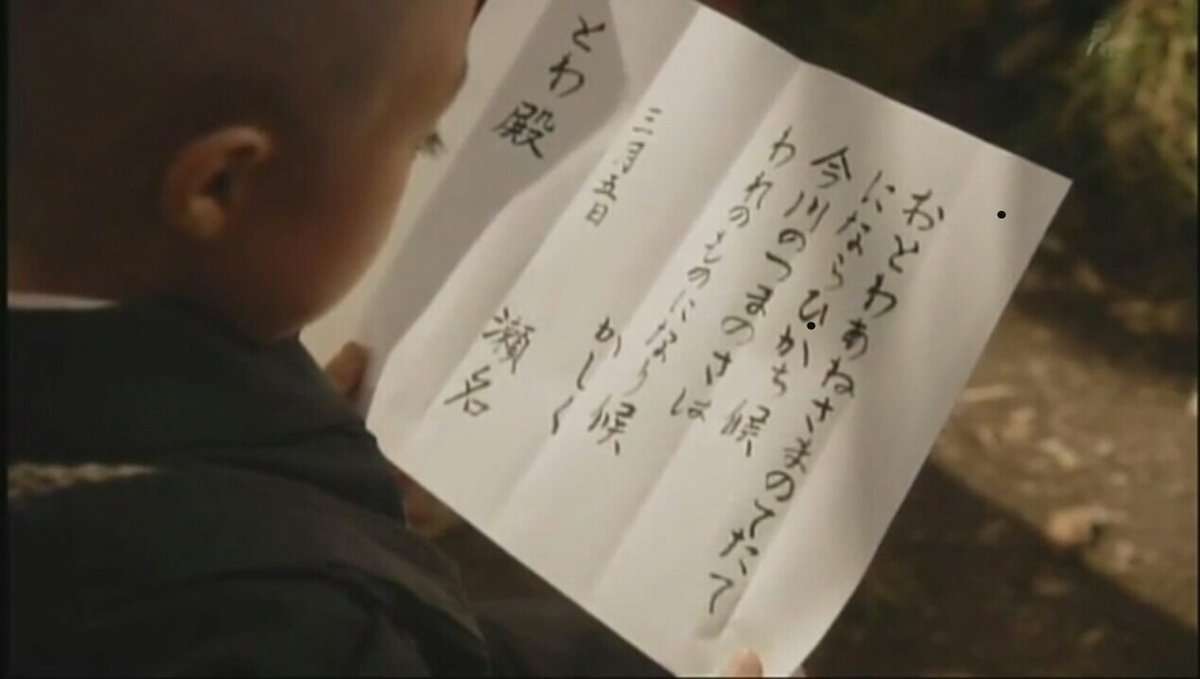 おとわあねさまのてたて
にならひかち候
今川のつまのさは
われのものになり候
かしく
三月五日
瀬名
とわ殿